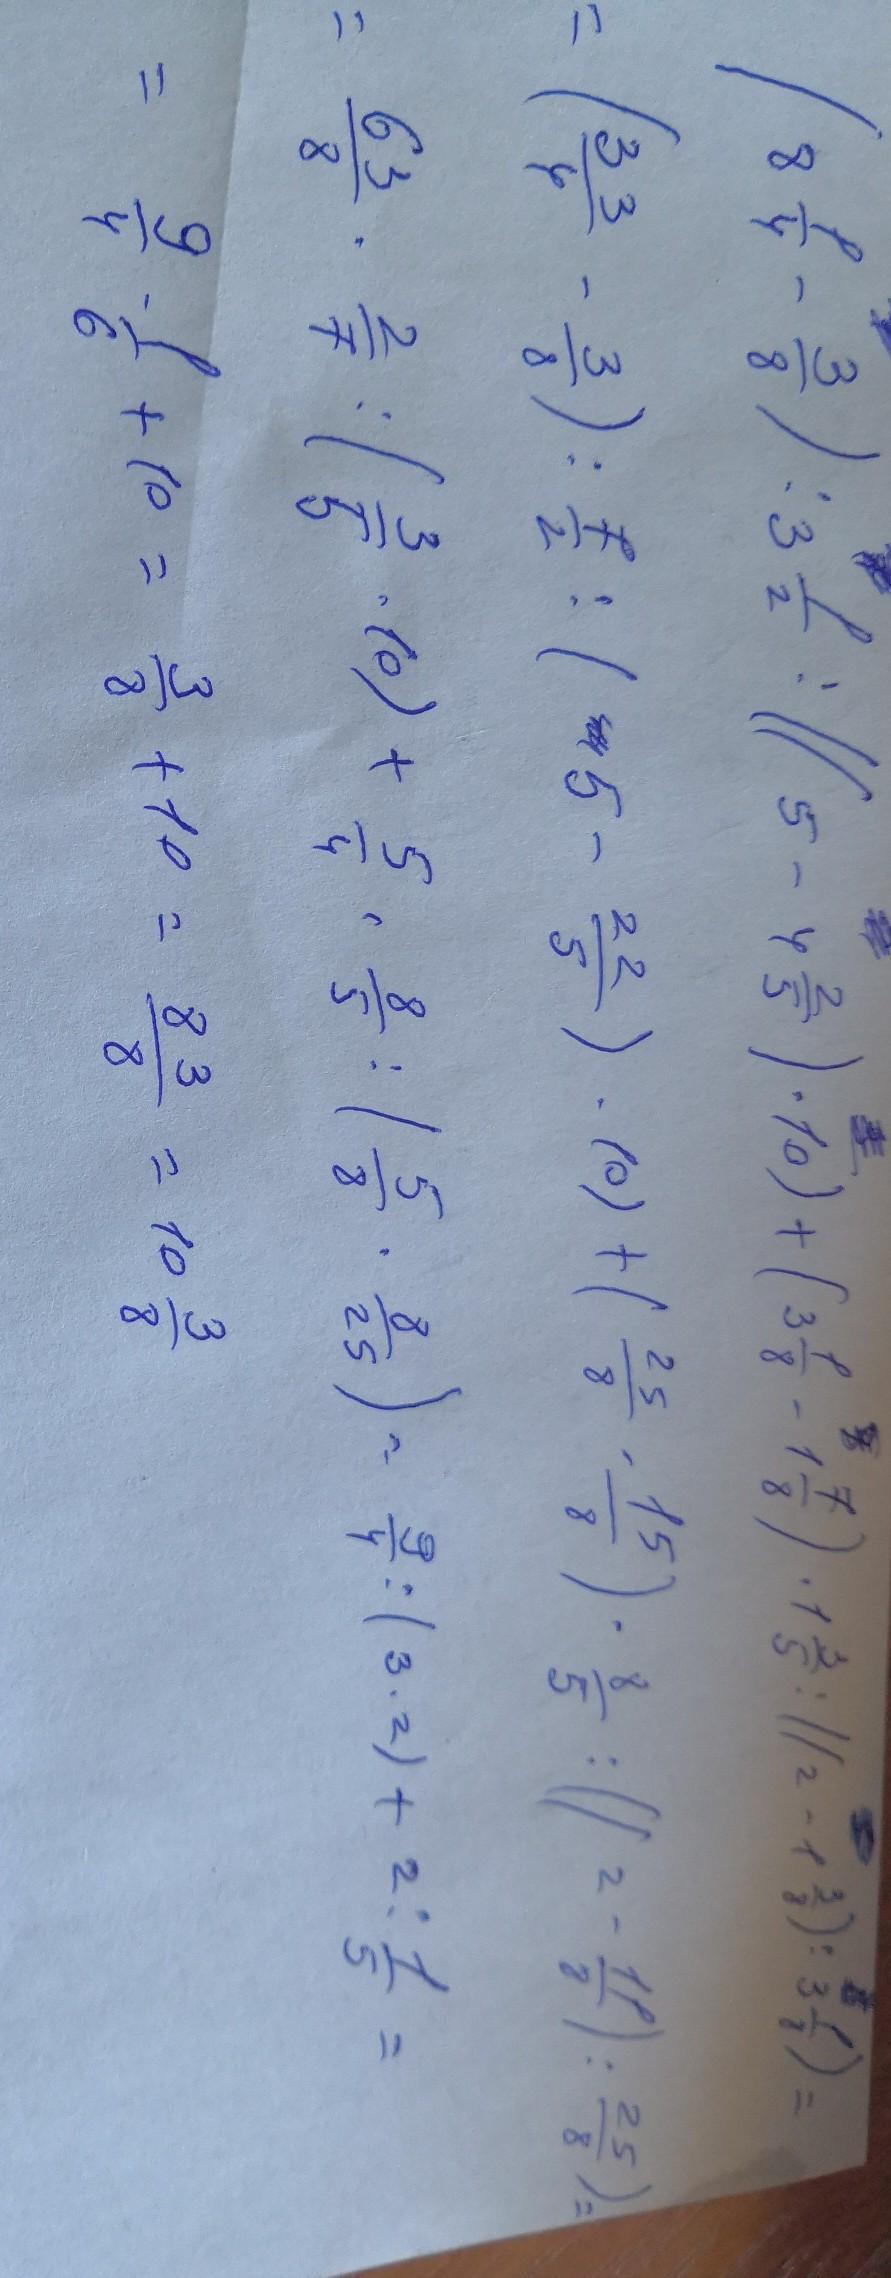 (8 1/4 - 3/8) : 3 1/2 : ((5 - 4 2/5) · 10) + (3 1/8 - 1 7/8) · 1 3/5 : ((2 - 1 3/8) : 3 1/8) =
= (33/4 - 3/8) : 7/2 : ( 5 - 22/5) · 10) + (25/8 - 15/8) · 8/5 : ((2 - 11/8) : 25/8) =
= 63/8 · 2/7 : (3/5 · 10) + 5/4 · 8/5 : (5/8 · 8/25) = 9/4 : (3 · 2) + 2 : 1/5 =
= 9/4 · 1/6 + 10 = 3/8 + 10 = 83/8 = 10 3/8